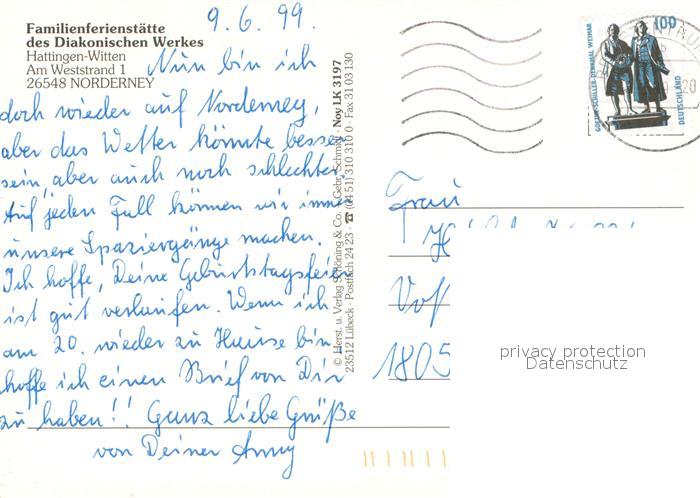 9. 6. 99.
Familienferienstätte
des Diakonischen Werkes
Hattingen-Witten
Am Weststrand 1
26548 NORDERNEY
Nun bin ich
doch wieder auf Norderney,
aber das Wetter könnte besser
sein, aber auch noch schlechter.
Auf jeden Fall können wir immer
unsere Spaziergänge machen.
Ich hoffe, Deine Geburtstagsfeier
ist gut verlaufen. Wenn ich
am 20. wieder zu Hause bin,
hoffe ich einen Brief von Dir
zu haben!! Ganz liebe Grüße
von Deiner Anny
© Herst. u. Verlag Schöning & Co. + Gebr. Schmidt · Noy LK 3197
23512 Lübeck · Postfach 24 23 · ☎ (04 51) 310 310 · Fax 31 03 130
100
GOETHE-SCHILLER-DENKMAL WEIMAR
DEUTSCHLAND
20
Frau
1805
privacy protection
Datenschutz